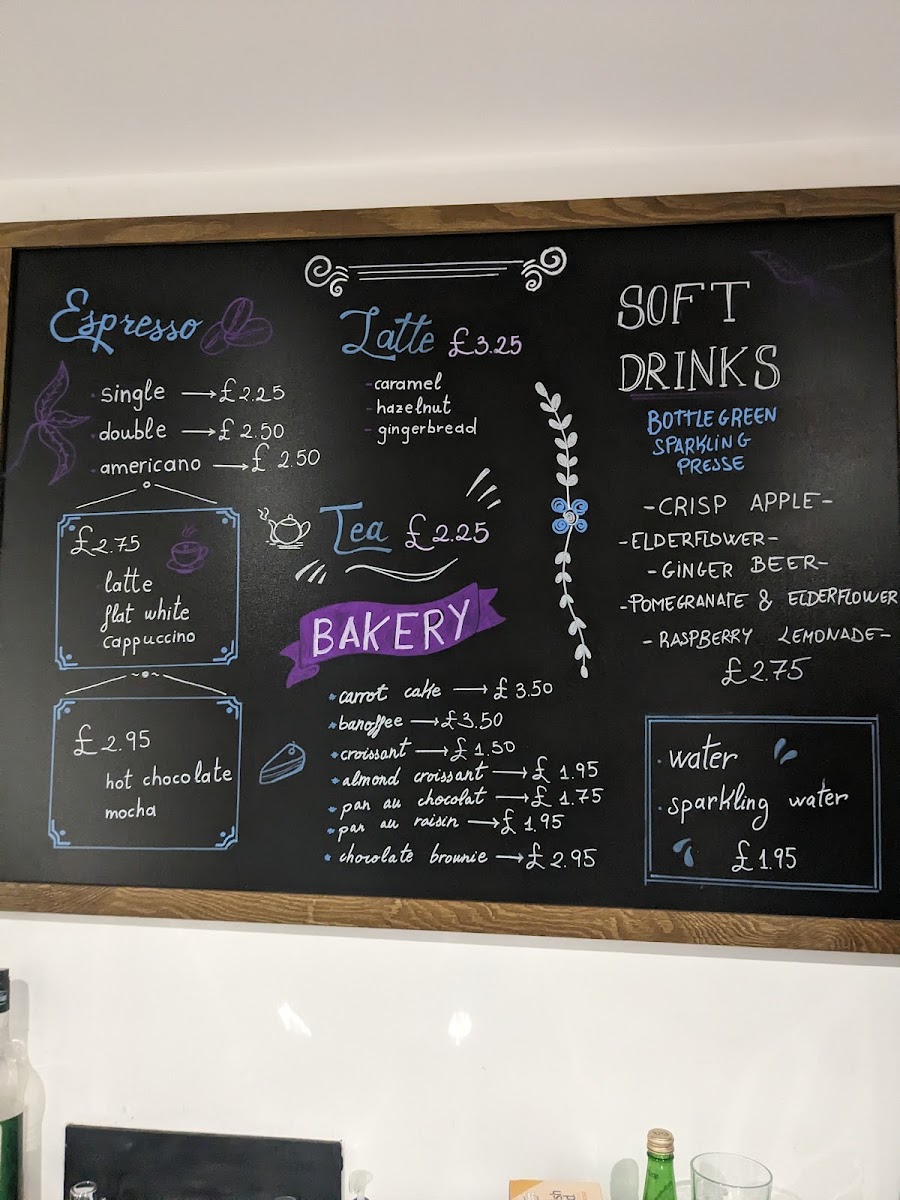 Espresso
single → £2.25
double → £2.50
americano → £2.50
£2.75
latte
flat white
cappuccino
£2.95
hot chocolate
mocha
Latte £3.25
- caramel
- hazelnut
- gingerbread
Tea £2.25
BAKERY
carrot cake → £3.50
banoffee → £3.50
croissant → £1.50
almond croissant → £1.95
pan au chocolat → £1.75
pan au raisin → £1.95
chocolate brownie → £2.95
SOFT
DRINKS
BOTTLE GREEN
SPARKLING
PRESSE
- CRISP APPLE -
- ELDERFLOWER -
- GINGER BEER -
- POMEGRANATE & ELDERFLOWER
- RASPBERRY LEMONADE -
£2.75
water
sparkling water
£1.95